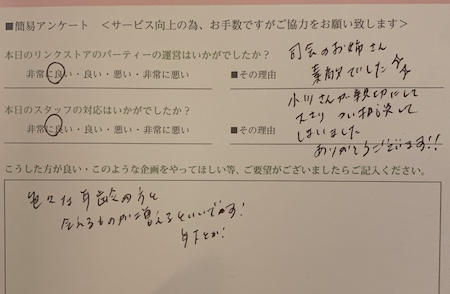 ■簡易アンケート <サービス向上の為、お手数ですがご協力をお願い致します>
本日のリンクストアのパーティーの運営はいかがでしたか?
非常に良い・良い・悪い・非常に悪い
■その理由
司会のお姉さん
素敵でした
本日のスタッフの対応はいかがでしたか?
非常に良い・良い・悪い・非常に悪い
■その理由
小川さんが親切にして
つい相談して
しまいました
ありがとうございます!!
こうした方が良い・このような企画をやってほしい等、ご要望がございましたらご記入ください。
色々な年齢の方と
会えるものが増えるといいです!
年下とか!